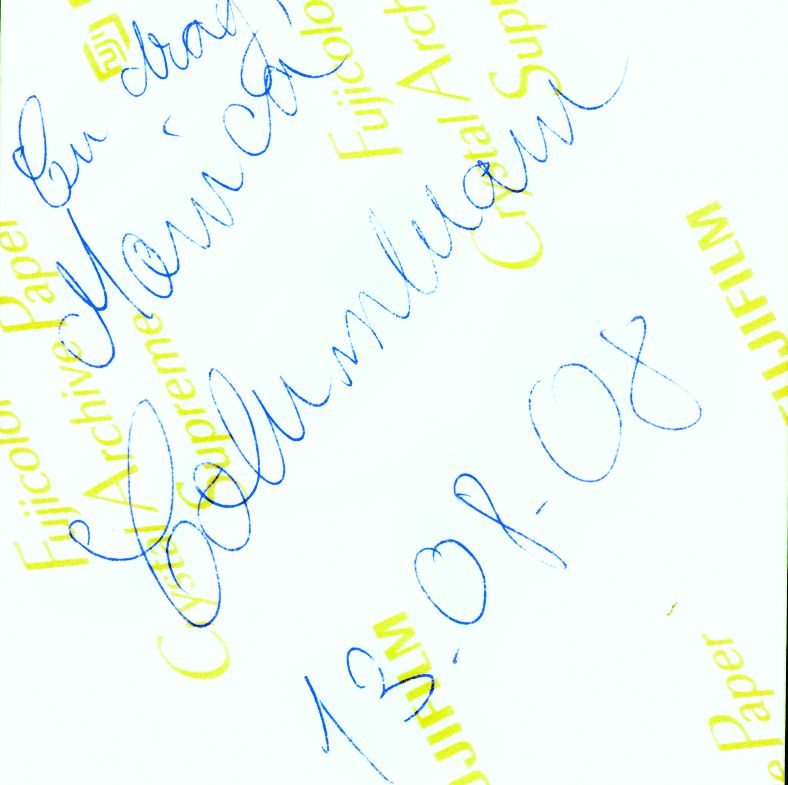 Cu drag,
Monica
Columbeanu
13.08.08
Fujicolor
Crystal Archive Paper
Supreme
Fujicolo
Crystal Arch
Supr
FUJIFILM
UJIFILM
Paper